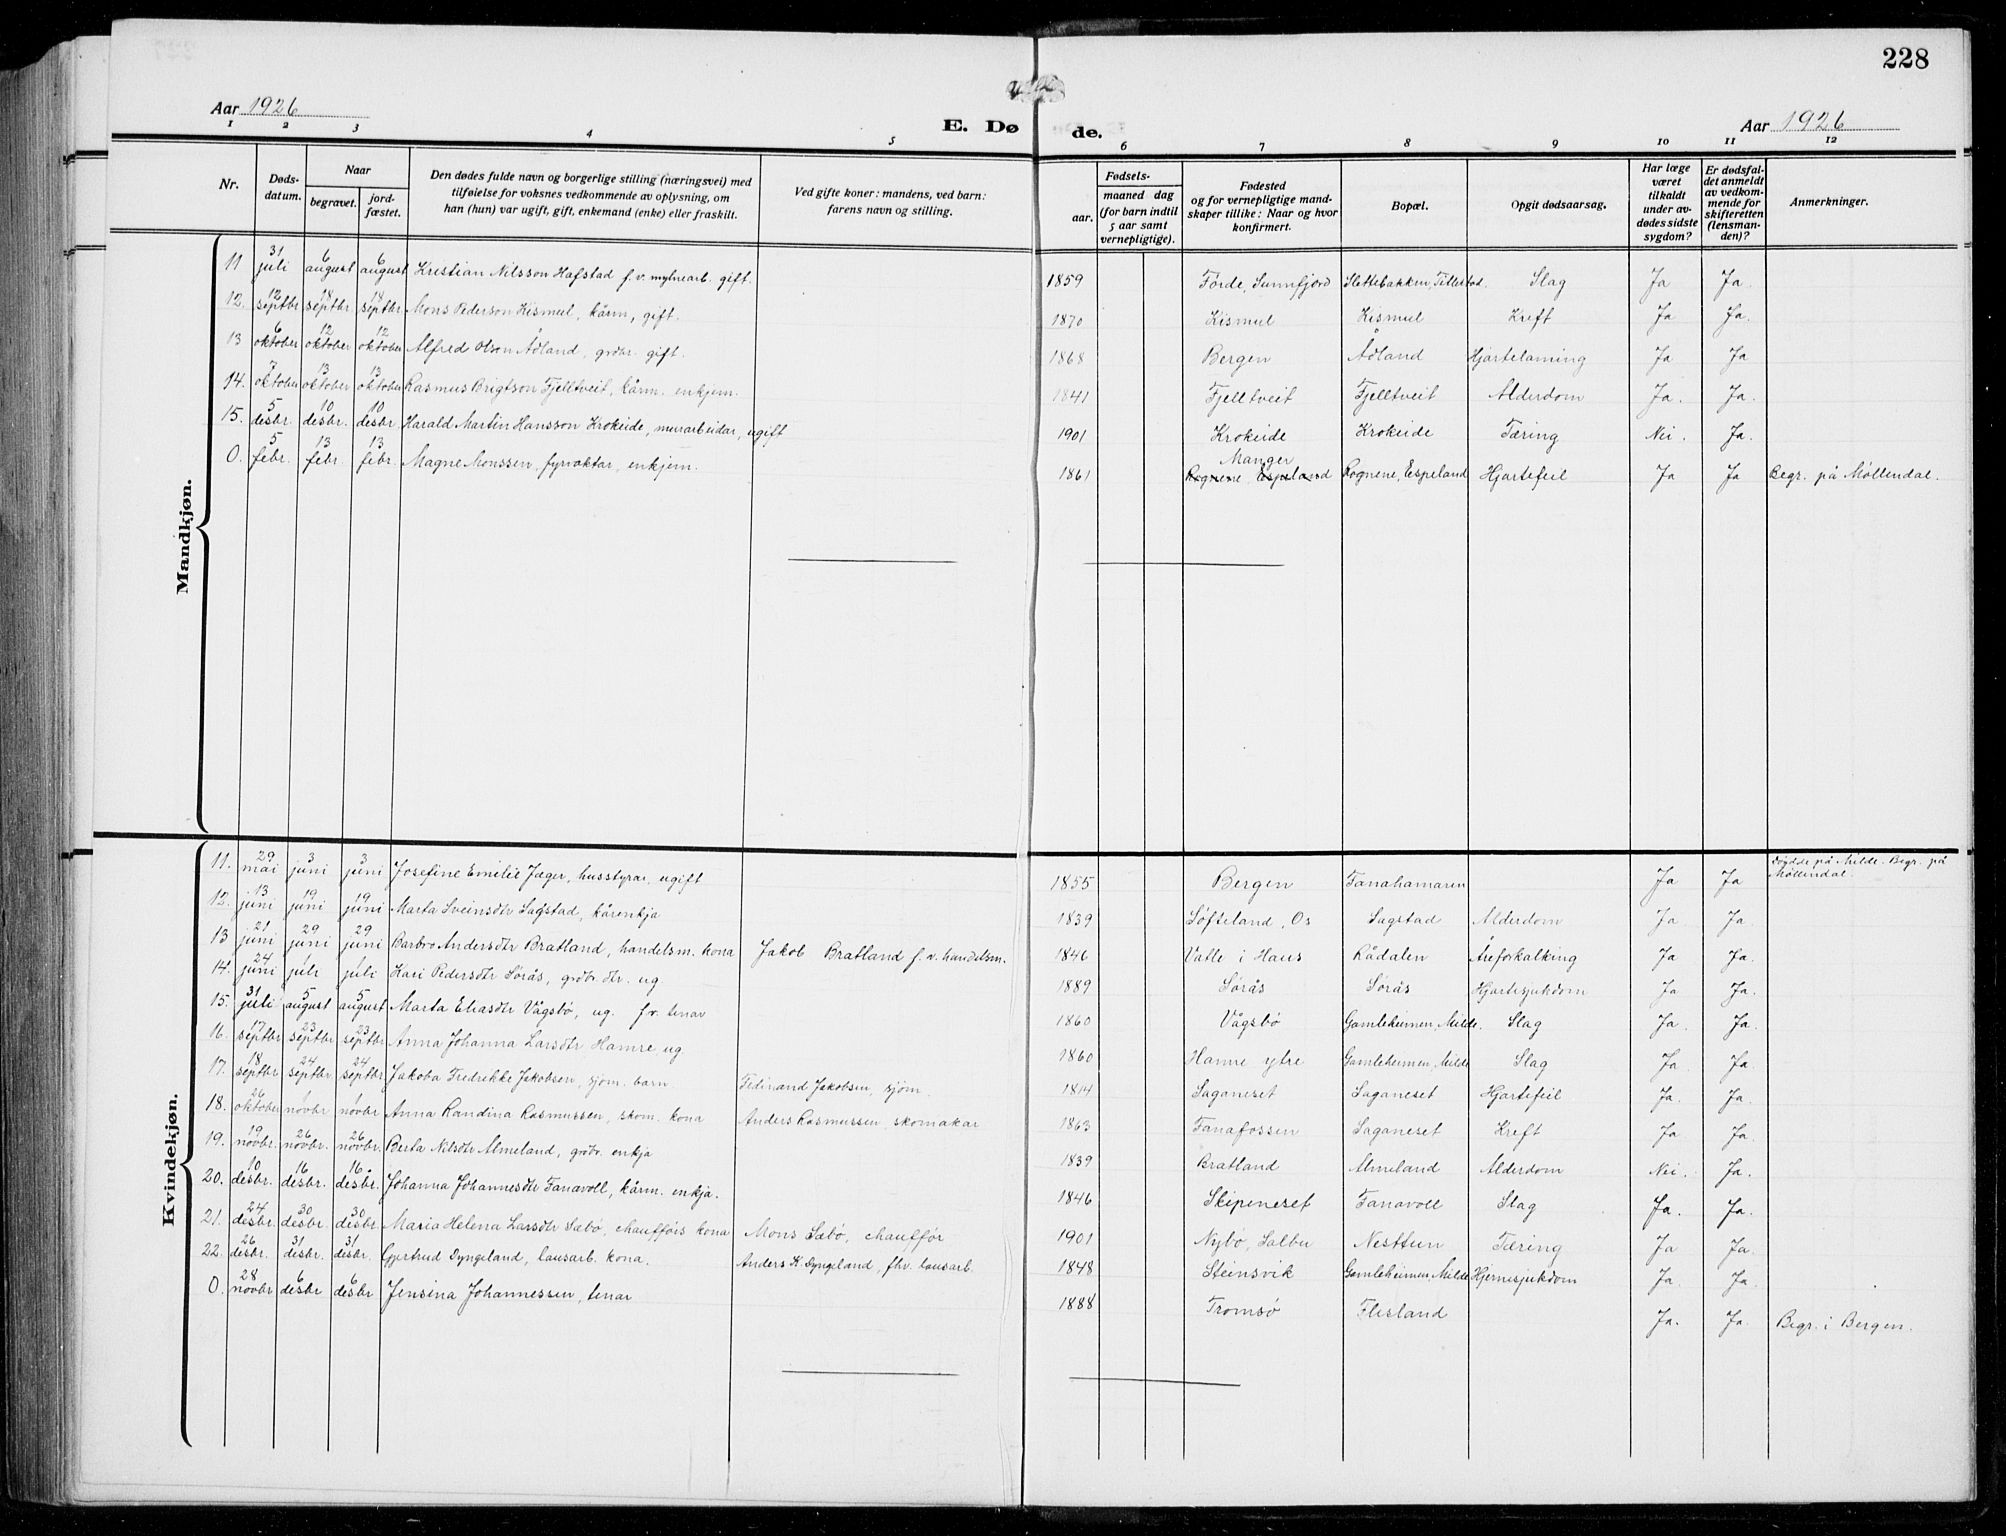 228
Aar 1926
E. Dø de.
Aar 1926
1 2 3 4 5 6 7 8 9 10 11 12
Nr. | Døds-datum. | Naar begravet. | jord-fæstet. | Den dødes fulde navn og borgerlige stilling (næringsvei) med tilføielse for voksnes vedkommende av oplysning, om han (hun) var ugift, gift, enkemand (enke) eller fraskilt. | Ved gifte koner: mandens, ved barn: farens navn og stilling. | Fødsels- aar. | maaned dag (for barn indtil 5 aar samt vernepligtige). | Fødested og for vernepligtige mandskaper tillike: Naar og hvor konfirmert. | Bopæl. | Opgit dødsaarsag. | Har læge været tilkaldt under av-dødes sidste sygdom? | Er dødsfal-det anmeldt av vedkom-mende for skifteretten (lensman-den)? | Anmerkninger.
Mandkjøn.
11 | 31 juli | 6 august | 6 august | Kristian Nilsson Hafstad f. v. mylnearb. gift. | 1859 | Førde, Sunnfjord | Slettebakken, Tillestad. | Slag | Ja | Ja.
12. | 12 septbr | 18 septbr | 18 septbr | Mons Pederson Kismul, kårm, gift. | 1870 | Kismul | Kismul | Kreft | Ja | Ja.
13 | 6 oktober | 12 oktober | 12 oktober | Alfred Olson Ådland, grdbr. gift. | 1868 | Bergen | Ådland | Hjartelaming | Ja | Ja
14. | 7 oktober | 13 oktober | 13 oktober | Rasmus Brigtson Fjelltveit, kårm. enkjem. | 1841 | Fjelltveit | Fjelltveit | Alderdom | Ja. | Ja.
15. | 5 desbr. | 10 desbr. | 10 desbr. | Harald Martin Hansson Krokeide, murarbeidar, ugift | 1901 | Krokeide | Krokeide | Tæring | Nei. | Ja.
0. | 5 febr. | 13 febr. | 13 febr. | Magne Monssen, fyrvaktar, enkjem. | 1861 | Manger Rognene, Espeland | Rognene, Espeland | Hjartefeil | Ja | Ja | Begr. på Møllendal.
Kvindekjøn.
11. | 29 mai | 3 juni | 3 juni | Josefine Emilie Jæger, husstyrar, ugift | 1855 | Bergen | Fanahamaren | Ja | Ja | Døydde på Milde. Begr. på Møllendal.
12. | 13 juni | 19 juni | 19 juni | Marta Sveinsdtr Sagstad, kårenkja | 1839 | Søfteland, Os | Sagstad | Alderdom | Ja | Ja.
13 | 21 juni | 29 juni | 29 juni | Barbro Andersdtr Bratland, handelsm. kona | Jakob Bratland f. v. handelsm. | 1846 | Vatle i Haus | Rådalen | Åreforkalking | Ja | Ja.
14. | 24 juni | 1 juli | 1 juli | Kari Pedersdtr Sørås, grdbr. dtr. ug. | 1889 | Sørås | Sørås | Hjartesjukdom | Ja | Ja.
15. | 31 juli | 5 august | 5 august | Marta Eliasdtr Vågsbø, ug. f. v. tenar | 1860 | Vågsbø | Gamleheimen, Milde. | Slag | Ja. | Ja.
16. | 17 septbr | 23 septbr | 23 septbr | Anna Johanna Larsdtr Hamre, ug. | 1860 | Hamre ytre | Gamleheimen, Milde | Slag | Ja. | Ja.
17. | 18 septbr | 24 septbr | 24 septbr | Jakoba Fredrikke Jakobsen, sjøm. barn. | Ferdinand Jakobsen, sjøm. | 1814 | Saganeset | Saganeset | Hjartefeil | Ja. | Ja.
18. | 26 oktober | 1 novbr | 1 novbr | Anna Randina Rasmussen, skom. kona | Anders Rasmussen, skomakar | 1863 | Fanafossen | Saganeset | Kreft | Ja | Ja.
19. | 19 novbr. | 26 novbr. | 26 novbr. | Berta Nilsdtr Almeland, grdbr. enkja | 1839 | Bratland | Almeland | Alderdom | Nei. | Ja.
20. | 10 desbr. | 16 desbr. | 16 desbr. | Johanna Johannesdtr Fanavoll, kårm. enkja. | 1846 | Skipeneset | Fanavoll | Slag | Ja. | Ja.
21. | 24 desbr. | 30 desbr. | 30 desbr. | Maria Helena Larsdtr Sæbø, chaufførs kona | Mons Sæbø, chauffør | 1901 | Nybø, Salbu | Nesttun | Tæring | Ja | Ja.
22. | 26 desbr. | 31 desbr. | 31 desbr. | Gjertrud Dyngeland, lausarb. kona. | Anders K. Dyngeland, fhv. lausarb. | 1848 | Steinsvik | Gamleheimen, Milde | Hjernesjukdom | Ja. | Ja.
0. | 28 novbr | 6 desbr | 6 desbr | Jensina Johannessen, tenar | 1888 | Tromsø | Flesland | Ja. | Ja. | Begr. i Bergen.